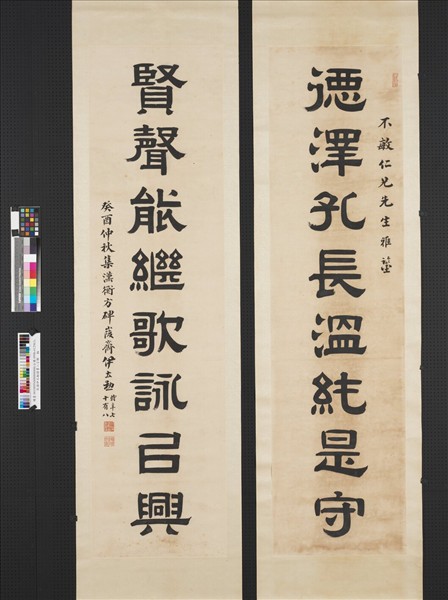 不敏仁兄先生雅鑒
德澤孔長溫純是守
賢聲能繼歌詠㠯興
癸酉仲秋集漢衡方碑峻齋伊立勳
時年七
十有八